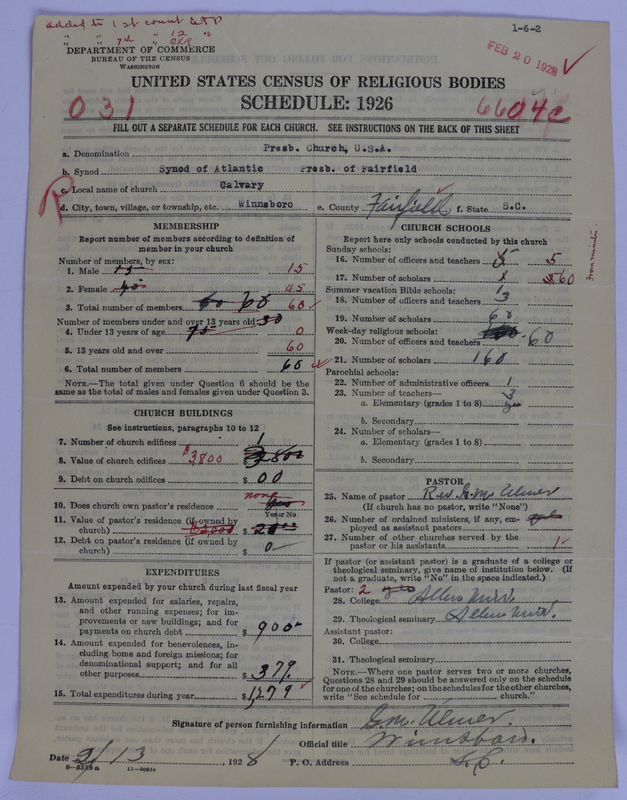 added to 1st count
1-6-2
DEPARTMENT OF COMMERCE
BUREAU OF THE CENSUS
WASHINGTON
FEB 20 1928
UNITED STATES CENSUS OF RELIGIOUS BODIES
SCHEDULE: 1926
031
6604c
FILL OUT A SEPARATE SCHEDULE FOR EACH CHURCH. SEE INSTRUCTIONS ON THE BACK OF THIS SHEET
a. Denomination Presb. Church, U.S.A.
b. Synod Synod of Atlantic Presb. of Fairfield
c. Local name of church Calvary
d. City, town, village, or township, etc. Winnsboro e. County Fairfield f. State S.C.
MEMBERSHIP
Report number of members according to definition of
member in your church
Number of members, by sex:
1. Male 15 15
2. Female 40 45
3. Total number of members 60 60 60
Number of members under and over 13 years old: 30
4. Under 13 years of age 75 0
5. 13 years old and over 60
6. Total number of members 60
NOTE.—The total given under Question 6 should be the
same as the total of males and females given under Question 3.
CHURCH BUILDINGS
See instructions, paragraphs 10 to 12
7. Number of church edifices 1
8. Value of church edifices $3800 $
9. Debt on church edifices $ 00
10. Does church own pastor's residence none
Yes or No
11. Value of pastor's residence (if owned by
church) $
12. Debt on pastor's residence (if owned by
church) $ 0
EXPENDITURES
Amount expended by your church during last fiscal year
13. Amount expended for salaries, repairs,
and other running expenses; for im-
provements or new buildings; and for
payments on church debt $ 900
14. Amount expended for benevolences, in-
cluding home and foreign missions; for
denominational support; and for all
other purposes $ 379
15. Total expenditures during year $ 1279
CHURCH SCHOOLS
Report here only schools conducted by this church
Sunday schools:
16. Number of officers and teachers 5
17. Number of scholars 60
Summer vacation Bible schools:
18. Number of officers and teachers 3
19. Number of scholars 60
Week-day religious schools:
20. Number of officers and teachers 60
21. Number of scholars 160
Parochial schools:
22. Number of administrative officers 1
23. Number of teachers—
a. Elementary (grades 1 to 8) 3
b. Secondary
24. Number of scholars—
a. Elementary (grades 1 to 8)
b. Secondary
PASTOR
25. Name of pastor Rev. G. M. Ulmer
(If church has no pastor, write "None")
26. Number of ordained ministers, if any, em-
ployed as assistant pastors
27. Number of other churches served by the
pastor or his assistants 1
If pastor (or assistant pastor) is a graduate of a college or
theological seminary, give name of institution below. (If
not a graduate, write "No" in the space indicated.)
Pastor: 2
28. College Allen Univ.
29. Theological seminary Allen Univ.
Assistant pastor:
30. College
31. Theological seminary
NOTE.—Where one pastor serves two or more churches,
Questions 28 and 29 should be answered only on the schedule
for one of the churches; on the schedules for the other churches,
write "See schedule for church."
Signature of person furnishing information G. M. Ulmer.
Official title Winnsboro.
Date 2/13, 1928 P. O. Address S.C.